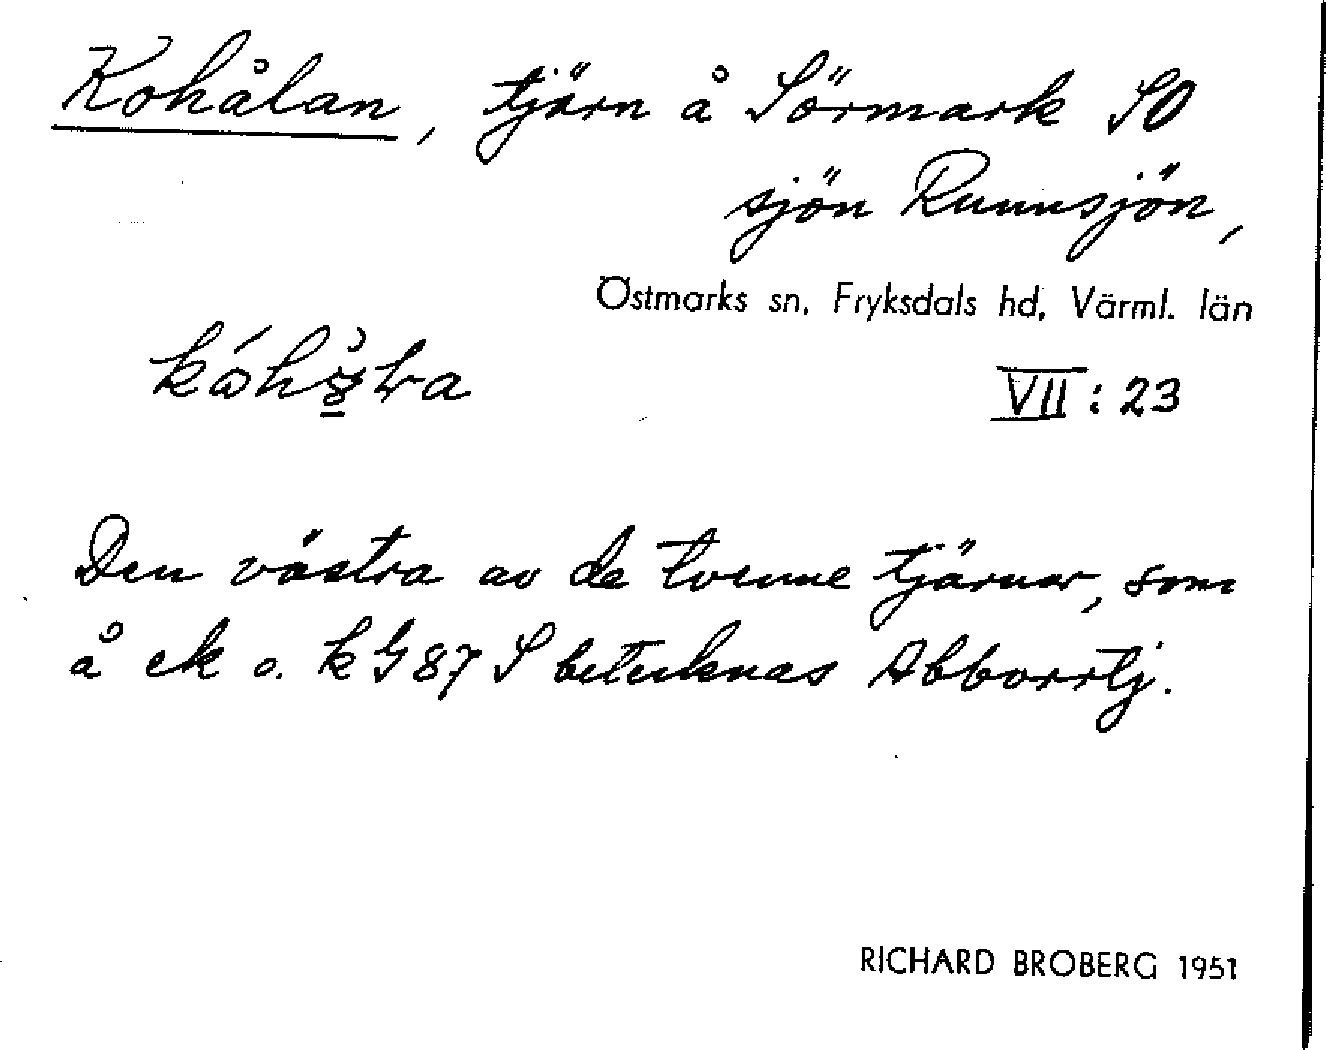 Kohålan, tjärn å Sörmark SO
sjön Runnsjön,
Östmarks sn, Fryksdals hd, Värml. län
VII : 23
Den västra av de tvenne tjärnar, som
å ek o. kG87 S betecknas Abborrtj.
RICHARD BROBERG 1951